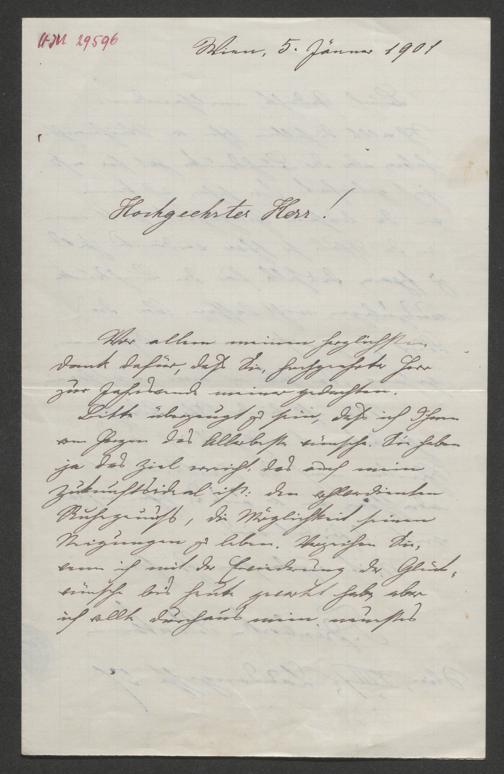 HJN 29596
Wien, 5. Jänner 1901
Hochgeehrter Herr!
Vor allem meinen herzlichsten
Dank dafür, daß Sie, hochgeehrter Herr
zur Jahreswende meiner gedachten.
Bitte überzeugt zu sein, daß ich Ihnen
von Herzen das Allerbeste wünsche. Sie haben
ja das Ziel erreicht, das auch mein
Zukunftsideal ist: den wohlverdienten
Ruhegenuß, die Möglichkeit seinen
Neigungen zu leben. Verzeihen Sie,
wenn ich mit der Erwiderung der Glück-
wünsche bis heute gewartet habe, aber
ich wollte durchaus mein neuestes